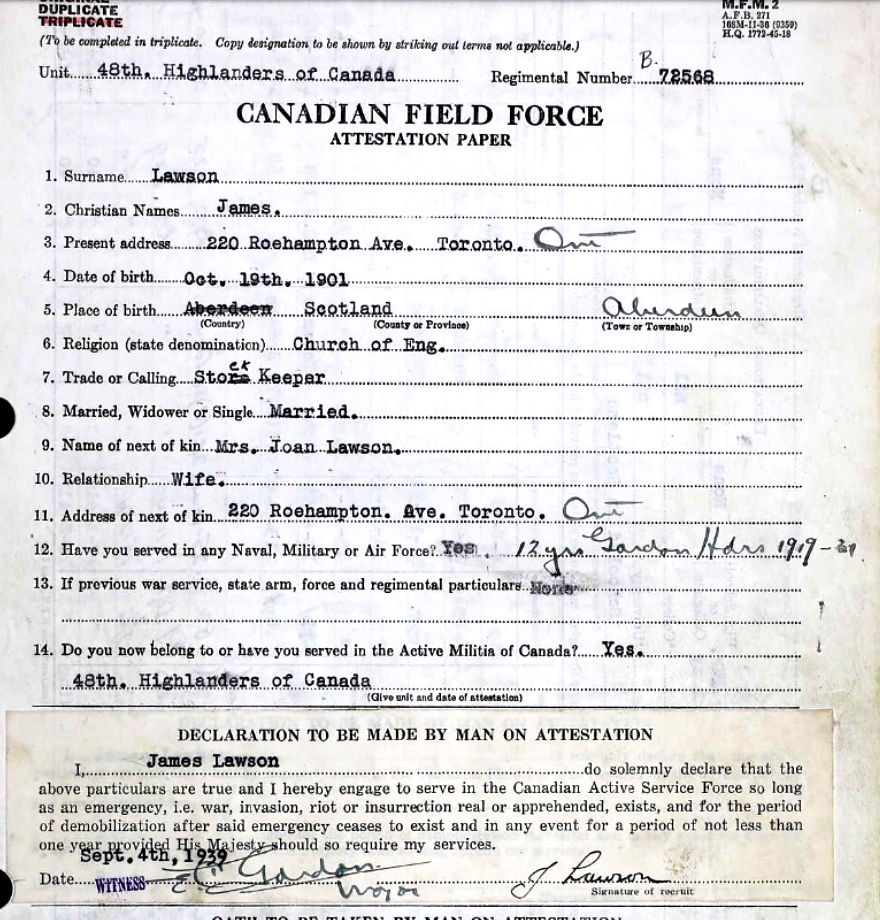 ORIGINAL
DUPLICATE
TRIPLICATE
M.F.M. 2
A.F.B. 271
168M-11-36 (0359)
H.Q. 1772-45-18
(To be completed in triplicate. Copy designation to be shown by striking out terms not applicable.)
Unit 48th. Highlanders of Canada Regimental Number B. 72568
CANADIAN FIELD FORCE
ATTESTATION PAPER
1. Surname Lawson
2. Christian Names James.
3. Present address 220 Roehampton Ave. Toronto. Ont
4. Date of birth Oct. 19th. 1901
5. Place of birth Aberdeen Scotland Aberdeen
(Country) (County or Province) (Town or Township)
6. Religion (state denomination) Church of Eng.
ck
7. Trade or Calling Store Keeper
8. Married, Widower or Single Married.
9. Name of next of kin Mrs. Joan Lawson.
10. Relationship Wife.
11. Address of next of kin 220 Roehampton. Ave. Toronto. Ont
12. Have you served in any Naval, Military or Air Force? Yes. 12 yrs Gordon Hdrs 1919-31
13. If previous war service, state arm, force and regimental particulars None
14. Do you now belong to or have you served in the Active Militia of Canada? Yes.
48th. Highlanders of Canada
(Give unit and date of attestation)
DECLARATION TO BE MADE BY MAN ON ATTESTATION
I, James Lawson do solemnly declare that the
above particulars are true and I hereby engage to serve in the Canadian Active Service Force so long
as an emergency, i.e. war, invasion, riot or insurrection real or apprehended, exists, and for the period
of demobilization after said emergency ceases to exist and in any event for a period of not less than
one year provided His Majesty should so require my services.
Sept. 4th, 1939
Date WITNESS Gordon Major J Lawson
Signature of recruit
OATH TO BE TAKEN BY MAN ON ATTESTATION